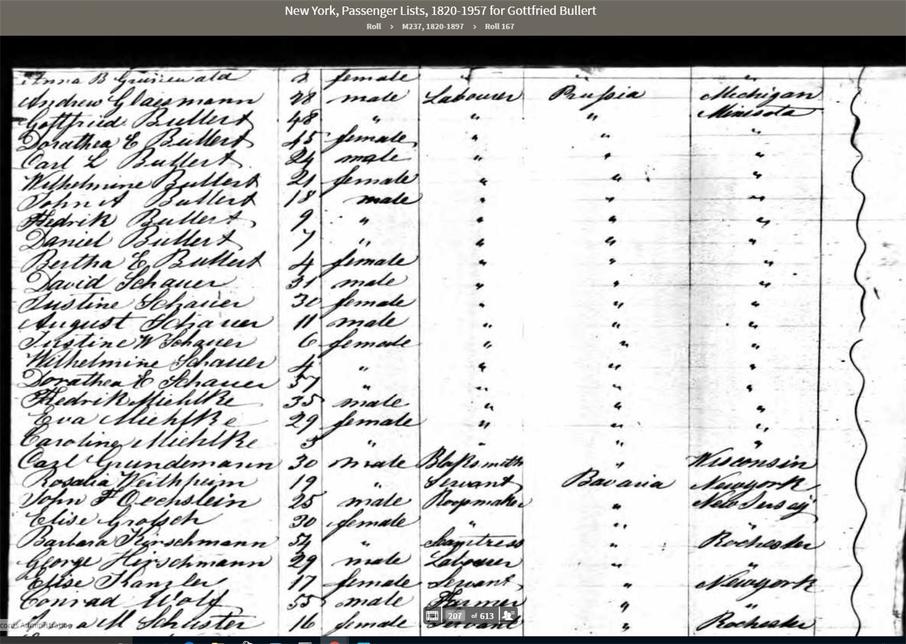 New York, Passenger Lists, 1820-1957 for Gottfried Bullert
Roll > M237, 1820-1897 > Roll 167
Anna B Grunewald 2 female " " "
Andrew Glaesmann 28 male Labourer Prussia Michigan
Gottfried Bullert 48 " " " Minisota
Dorathea E Bullert 45 female " " "
Carl L Bullert 24 male " " "
Wilhelmine Bullert 21 female " " "
John A Bullert 18 male " " "
Fredrik Bullert 9 " " " "
Daniel Bullert 7 " " " "
Bertha E Bullert 4 female " " "
David Schauer 31 male " " "
Justine Schauer 30 female " " "
August Schauer 11 male " " "
Justine W Schauer 6 female " " "
Wilhelmine Schauer 4 " " " "
Dorathea E Schauer 57 " " " "
Fredrik Michlke 35 male " " "
Eva Michlke 29 female " " "
Caroline Michlke " " "
Carl Grundemann 30 male Blaksmith " Wisconsin
Rosalia 19 " Servant Bavaria Newyork
John F Oechslein 25 male Roopmaker " New Jersey
Elise Grotsch 30 female " "
Barbara Hirschmann " Seamtress " Rochester
George Hirschmann 29 male Labourer " "
Elise Kanzler 17 female Servant " Newyork
Conrad Wolf 55 male Farmer " "
M Schuster 16 Servant " Rochester
207 of 613